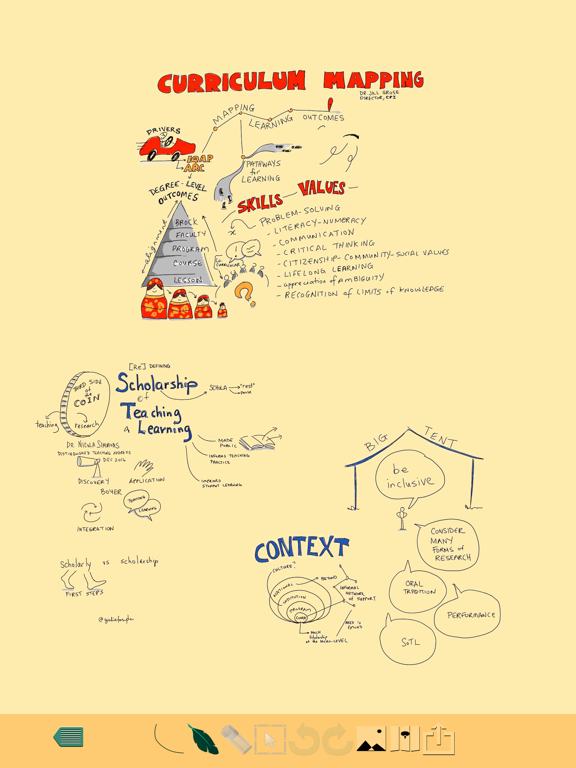 CURRICULUM MAPPING
DR. JILL GROSE
DIRECTOR, CPI
MAPPING
LEARNING
OUTCOMES
DRIVERS
IQAP
PATHWAYS
for
LEARNING
DEGREE-LEVEL
OUTCOMES
SKILLS
VALUES
alignment
BROCK
FACULTY
PROGRAM
COURSE
LESSON
PROBLEM-SOLVING
- LITERACY-NUMERACY
- COMMUNICATION
- CRITICAL THINKING
- CITIZENSHIP-COMMUNITY-SOCIAL VALUES
- LIFELONG LEARNING
- appreciation of AMBIGUITY
- RECOGNITION of LIMITS of KNOWLEDGE
?
[RE] DEFINING
Scholarship
of
Teaching
& Learning
THIRD SIDE
of the
COIN
teaching
research
SCHOLA
"rest"
MADE
PUBLIC
INFORMS TEACHING
PRACTICE
IMPROVES
STUDENT LEARNING
DR. NICOLA SIMMONS
DISTINGUISHED TEACHING AWARDS
DEC 2016
DISCOVERY
APPLICATION
BOYER
TEACHING
LEARNING
INTEGRATION
Scholarly vs scholarship
FIRST STEPS
BIG TENT
be
inclusive
CONSIDER
MANY
FORMS of
RESEARCH
ORAL
TRADITION
PERFORMANCE
SoTL
CONTEXT
CULTURE
NATIONAL
INSTITUTION
PROGRAM
BEYOND
INFORMAL
NETWORK
of SUPPORT